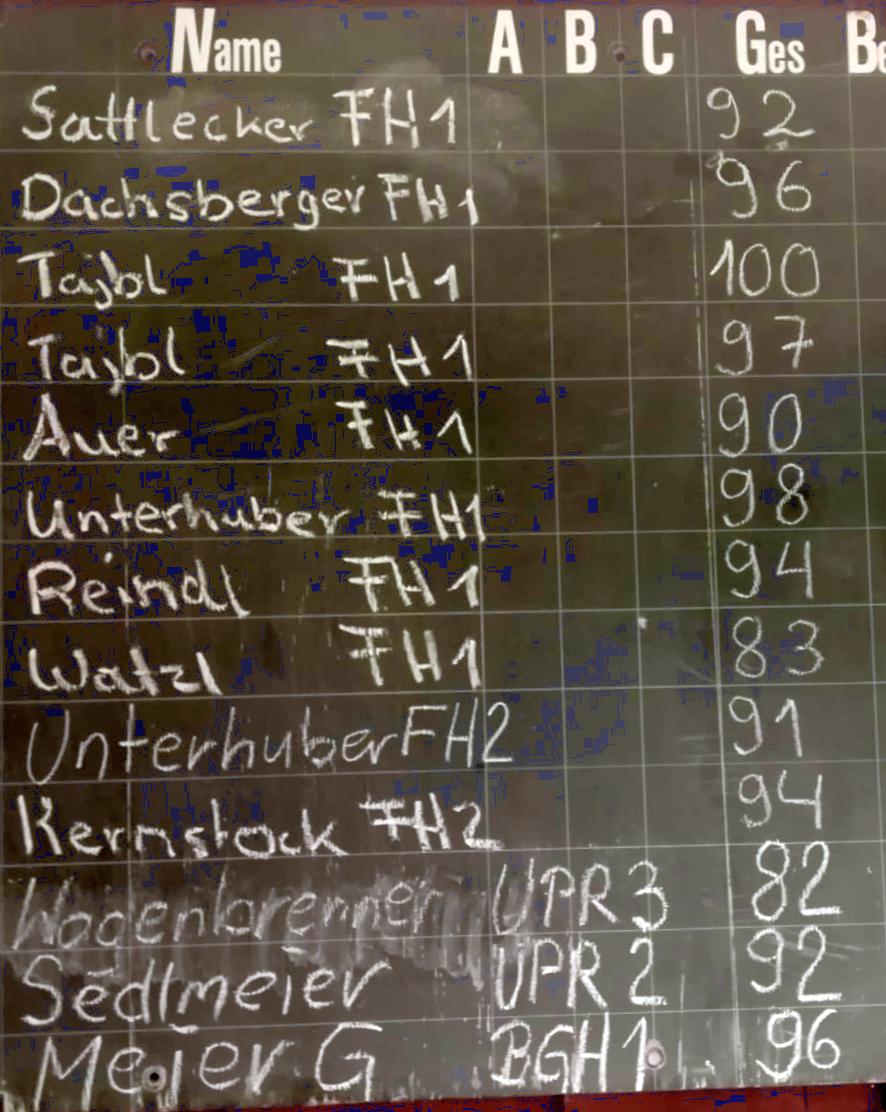 Name A B C Ges Be
Sattlecker FH1 92
Dachsberger FH1 96
Tajbl FH1 100
Tajbl FH1 97
Auer FH1 90
Unterhuber FH1 98
Reindl FH1 94
Watzl FH1 83
Unterhuber FH2 91
Kernstock FH2 94
Wagenbrenner UPR 3 82
Sedlmeier UPR 2 92
Meier G BGH1 96